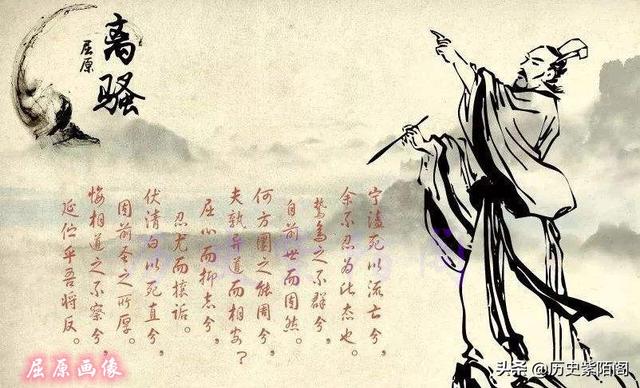 离骚
屈原
宁溘死以流亡兮，
余不忍为此态也。
鸷鸟之不群兮，
自前世而固然。
何方圜之能周兮，
夫孰异道而相安？
屈心而抑志兮，
忍尤而攘诟。
伏清白以死直兮，
固前圣之所厚。
悔相道之不察兮，
延伫乎吾将反。
屈原画像
头条 @历史紫陌阁